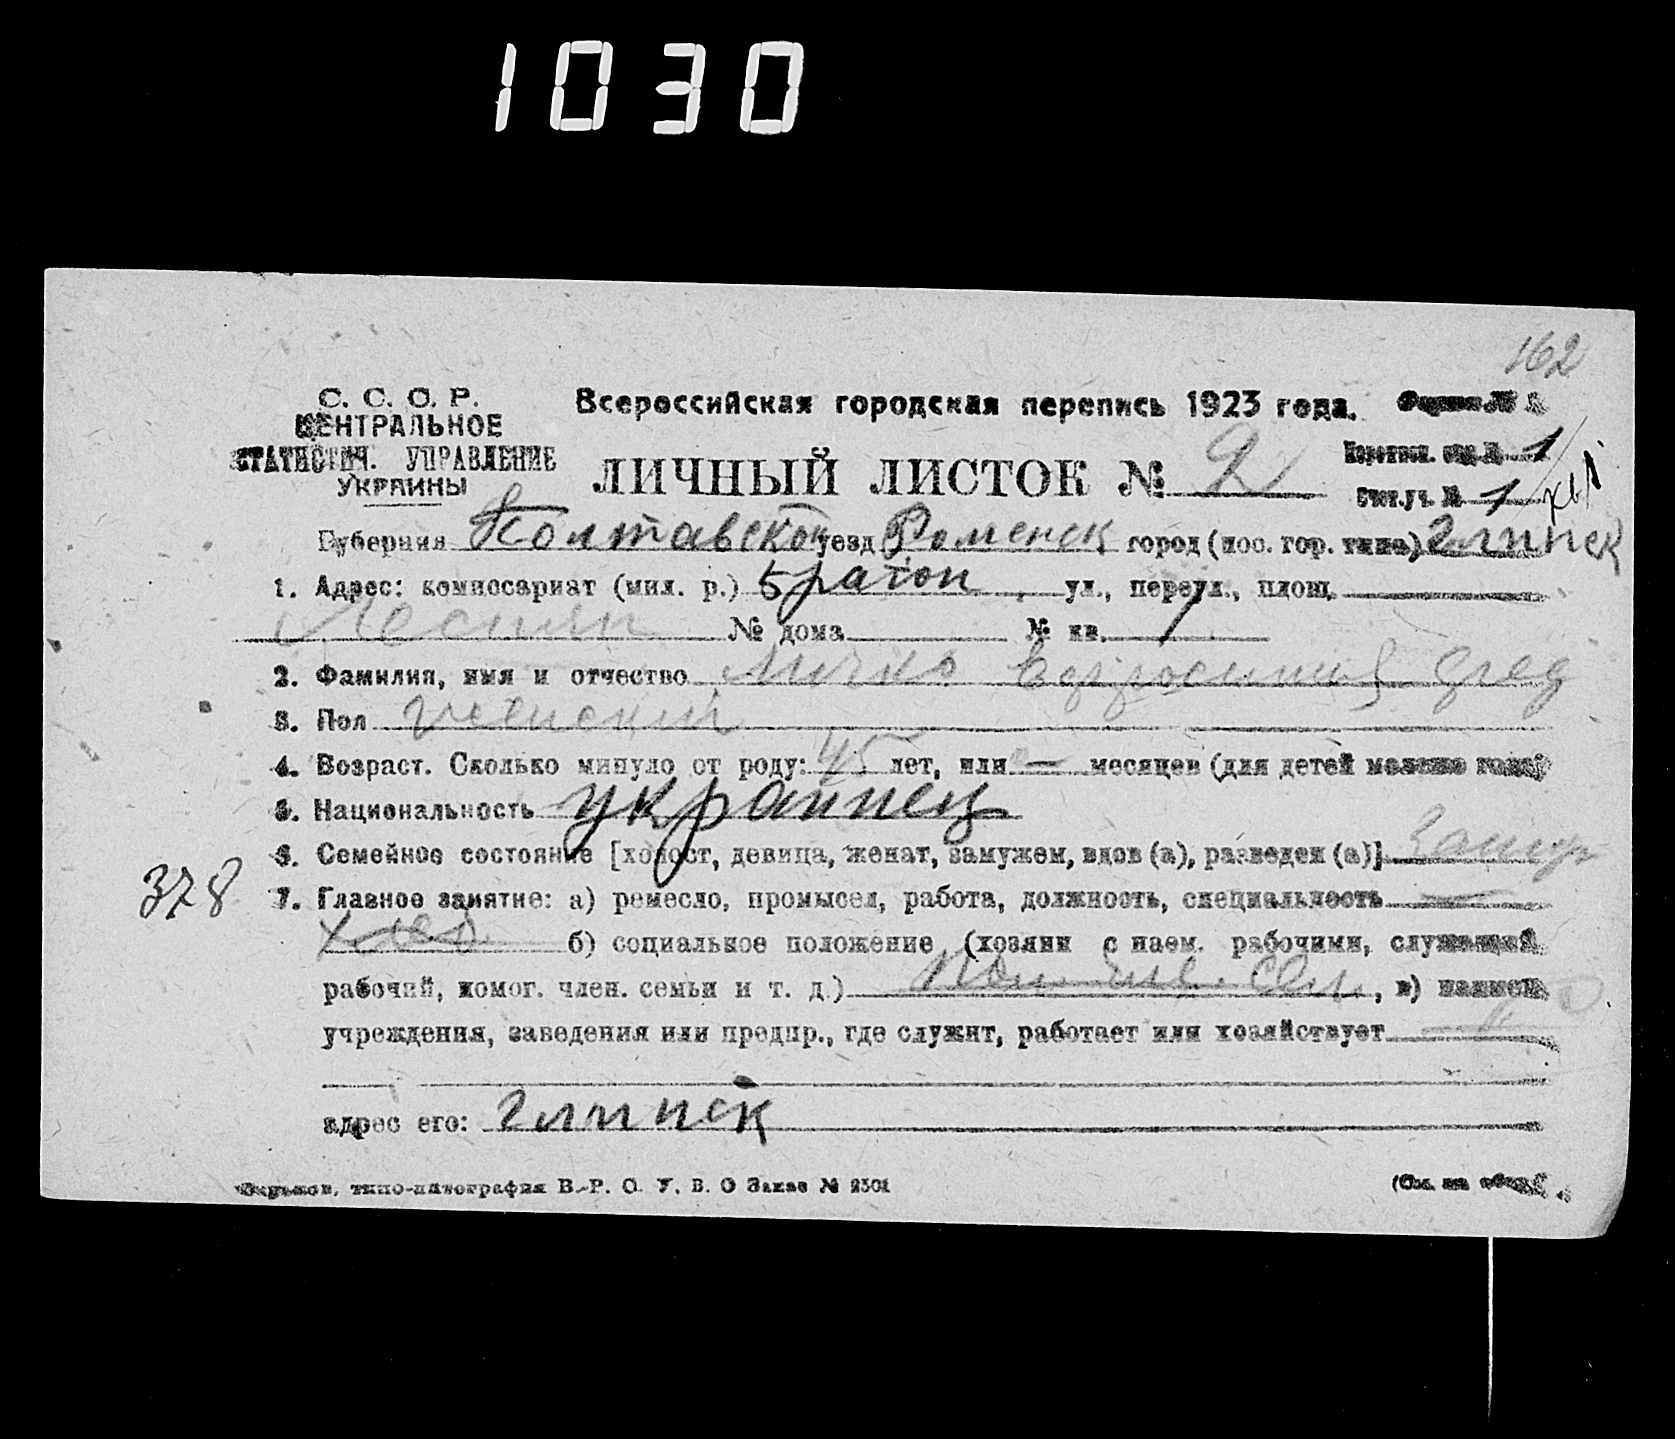 1030
162
С. С. С. Р.
ЦЕНТРАЛЬНОЕ
СТАТИСТИЧ. УПРАВЛЕНИЕ
УКРАИНЫ
Всероссийская городская перепись 1923 года. Форма №
ЛИЧНЫЙ ЛИСТОК № 2
1
Счетн.уч. № 1
Губерния Полтавской уезд Роменск город (пос. гор. типа) Глинск
1. Адрес: комиссариат (мил. р.) 5 район, ул., переул., площ.
№ дома № кв.
2. Фамилия, имя и отчество
3. Пол женский
4. Возраст. Сколько минуло от роду: 45 лет, или — месяцев (для детей моложе года)
5. Национальность украинец
6. Семейное состояние [холост, девица, женат, замужем, вдов (а), разведен (а)] Замуж
378
7. Главное занятие: а) ремесло, промысел, работа, должность, специальность —
б) социальное положение (хозяин с наем. рабочими, служащий
рабочий, помог. член. семьи и т. д.) , в) наимен.
учреждения, заведения или предпр., где служит, работает или хозяйствует
адрес его: Глинск
Харьков, типо-литография В.-Р. О. У. В. О Заказ № 2301
(См. на обор.